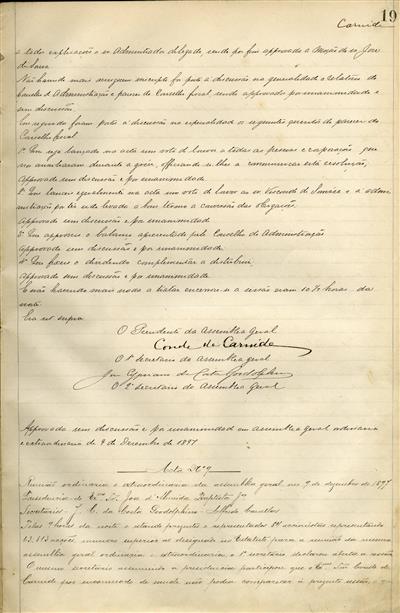 19
Carnide
e dado explicações o sr Administrador delegado, sendo por fim approvada a Moção do sr José
de Sousa
Não havendo mais ninguem inscripto foi posto á discussão na generalidade o relatorio do
Conselho d'Administração e parecer do Conselho fiscal sendo approvados por unanimidade e
sem discussão
Em seguida foram postos á discussão na especialidade os seguintes do parecer do
Conselho fiscal
1º Em seja lançado na acta um voto de louvor a todas as pessoas e corporações que
nos auxiliaram durante a gréve, esta resolução.
Approvado sem discussão e por unanimidade.
2º Em lançar egualmente na acta um voto de louvor ao sr Visconde de e á
por ter levado a bom termo a conversão das obrigações.
Approvado sem discussão e por unanimidade
3º Em approvar o balanço apresentado pelo Conselho de Administração
Approvado sem discussão e por unanimidade.
4º Em fixar o dividendo complementar a distribuir.
Approvado sem discussão e por unanimidade
E não havendo mais nada a tratar encerrou-se a sessão eram 10 ½ horas da
noite
Era ut supra
O Presidente da Assemblea geral
Conde de Carnide
O 1º Secretario da assemblea geral
José Cypriano da Costa Goodolphim
O 2º Secretario da assemblea geral
Approvada sem discussão e por unanimidade em assemblea geral ordinaria
e extraordinaria de 9 de Dezembro de 1897
Acta Nº 9
Reunião ordinaria e extraordinaria da assemblea geral em 9 de dezembro de 1897
Presidencia do Exmo Sr. José d'Almeida Baptista
Secretarios J. C. da Costa Goodolphim e Alfredo
Pelas 9 horas da noite e estando presentes e representados 84 accionistas representando
63.613 acções, numero superior ao designado no Estatuto para a reunião da mesma
assemblea geral ordinaria e extraordinaria, o 1º secretario declarou aberta a sessão
O mesmo secretario assumindo a presidencia participou que o Exmo Snr Conde de
Carnide por incommodo de saude não podia comparecer á presente sessão, e que